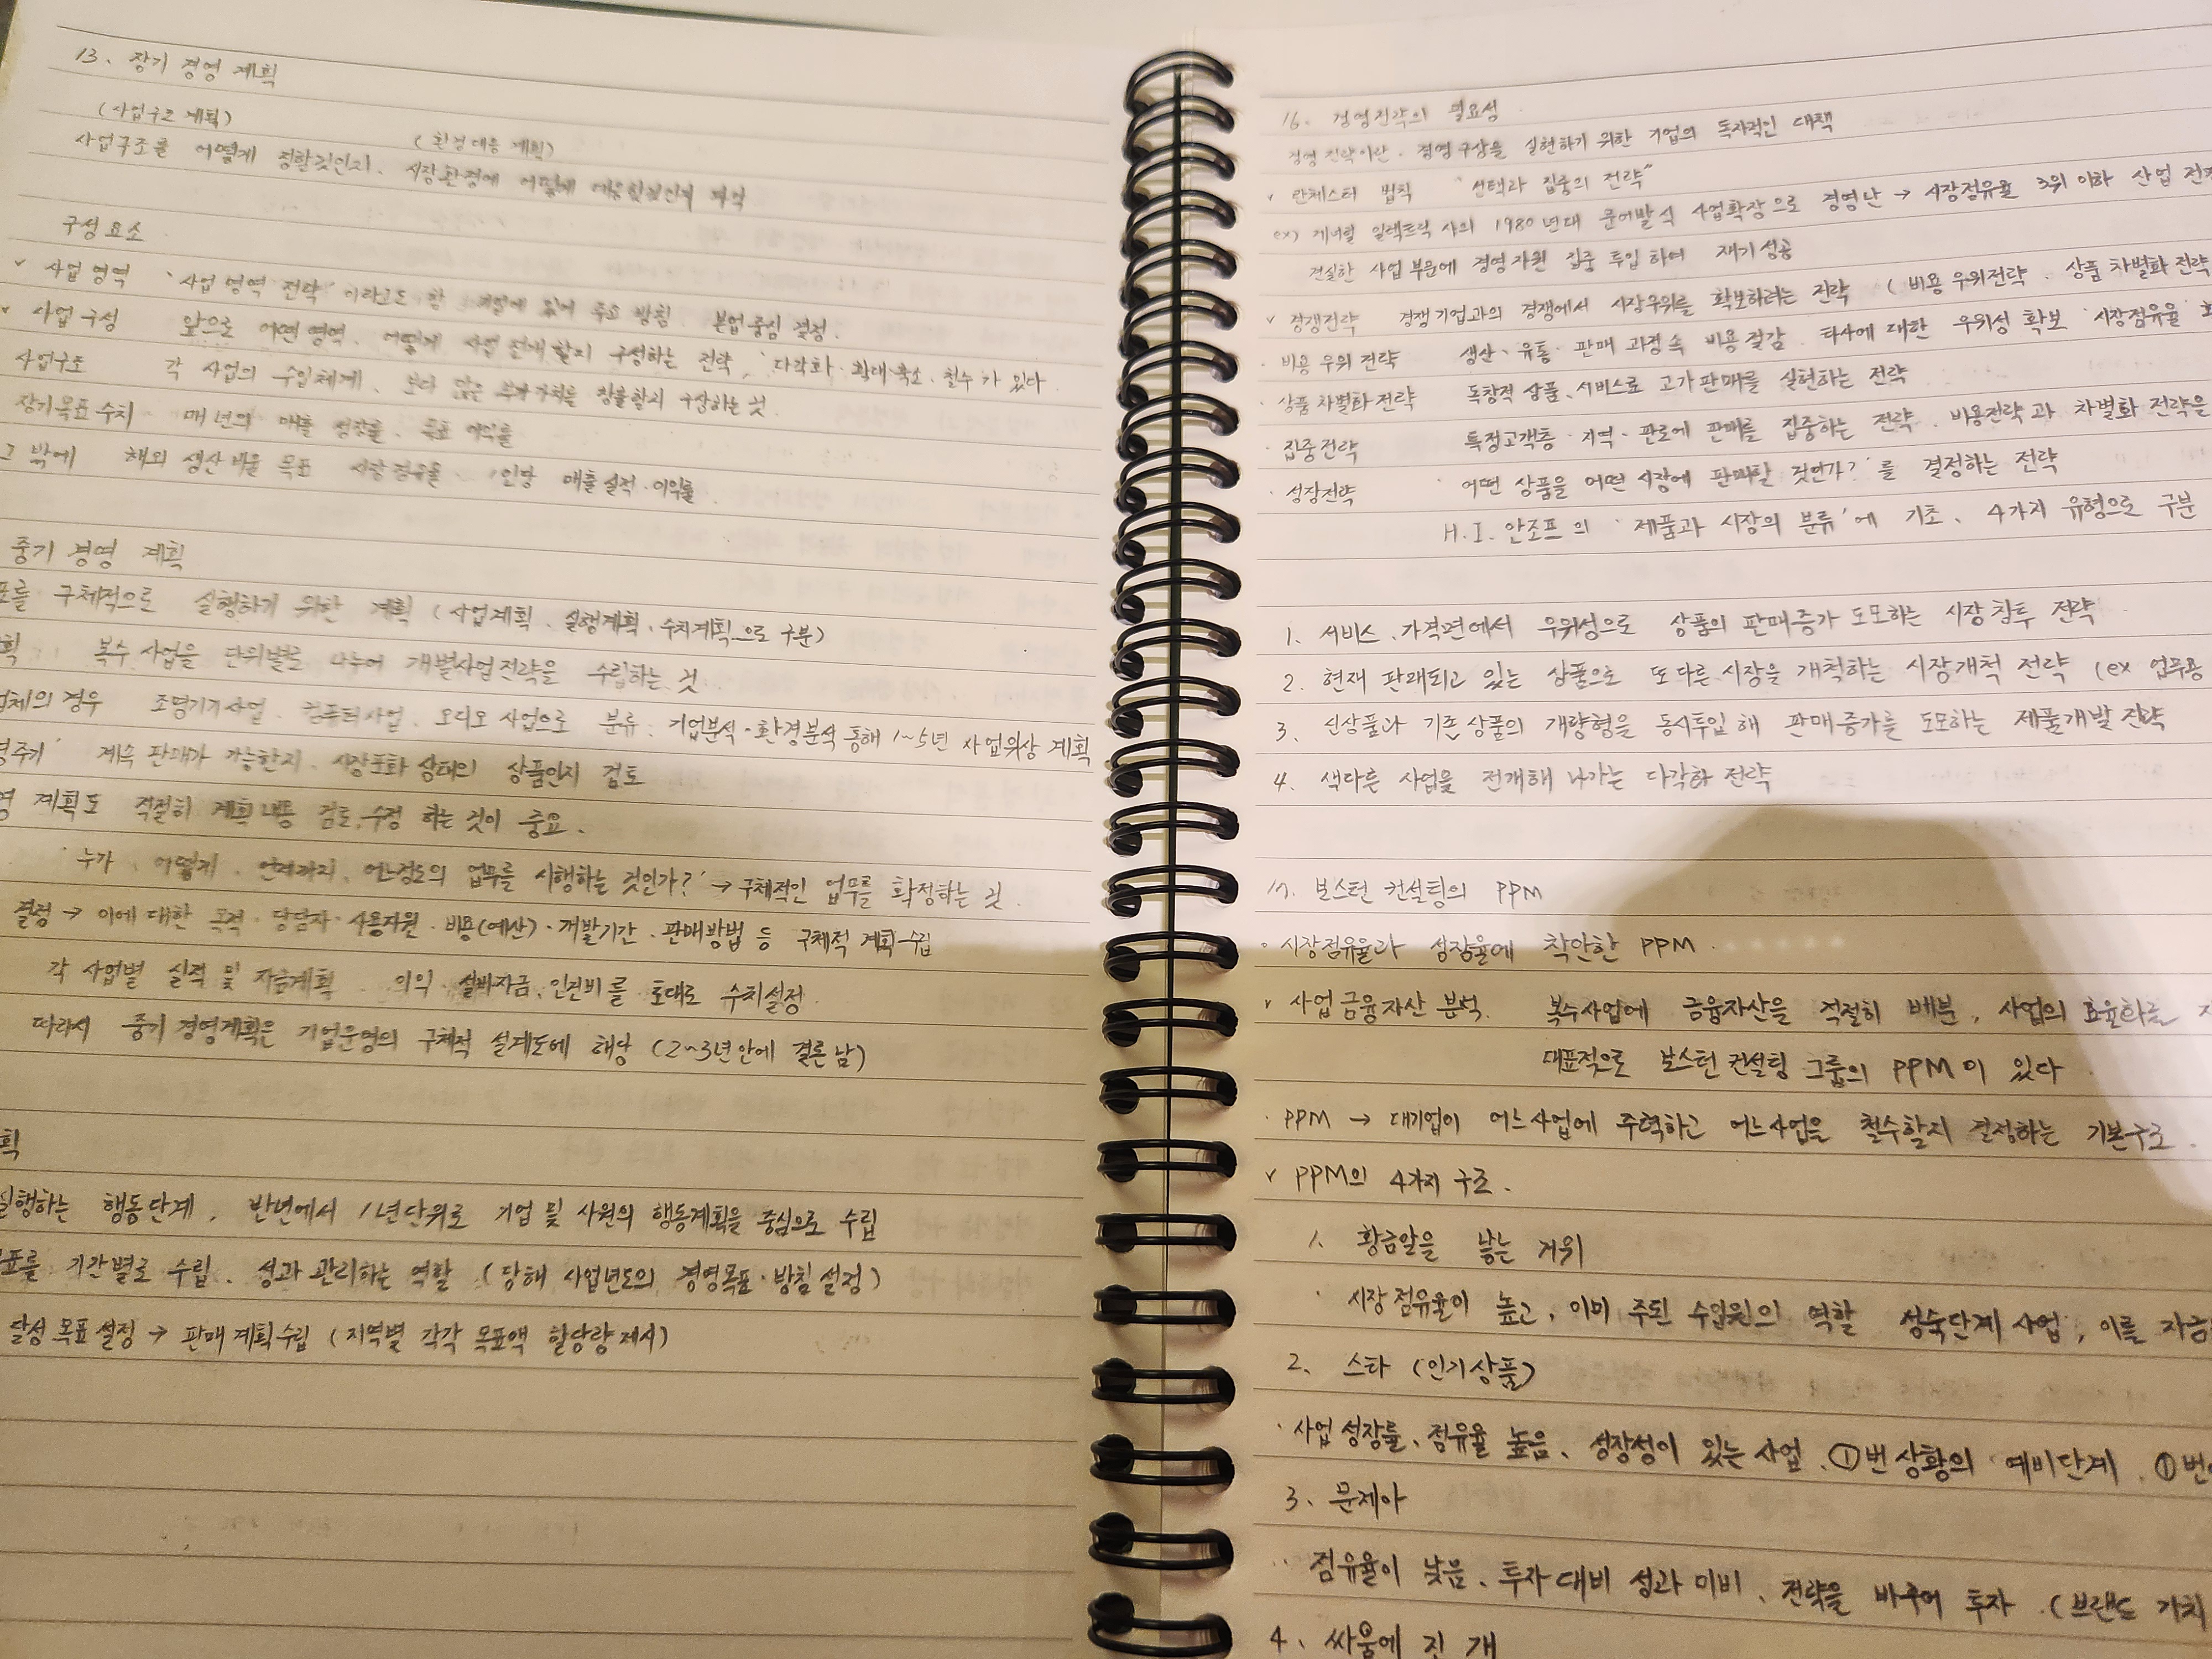 13. 장기 경영 계획
(사업구조 계획)
(환경대응 계획)
사업구조를 어떻게 정할것인지, 시장환경에 어떻게 대응할것인지 파악
구성요소
✓ 사업 영역 '사업 영역 전략' 이라고도 함 주요 방침 본업중심 결정.
✓ 사업 구성 앞으로 어떤 영역, 어떻게 사업 전개할지 구성하는 전략, '다각화·확대·축소·철수가 있다.
사업구조 각 사업의 수입체계, 보다 많은 부가가치를 창출할지 구상하는 것.
장기목표수치 매년의 매출 성장률, 목표 이익률
그 밖에 해외 생산비율 목표 시장점유율, 1인당 매출실적·이익률.
중기 경영 계획
표를 구체적으로 실행하기 위한 계획 (사업계획, 실행계획, 수치계획으로 구분)
획 복수 사업을 단위별로 나누어 개별사업전략을 수립하는 것
업체의 경우 조명기기사업, 컴퓨터사업, 오디오 사업으로 분류. 기업분석·환경분석 통해 1~5년 사업위상 계획
명주기' 계속 판매가 가능한지, 시장포화 상태의 상품인지 검토
영 계획도 적절히 계획내용 검토, 수정 하는 것이 중요.
'누가, 어떻게, 언제까지, 어느정도의 업무를 시행하는 것인가?' → 구체적인 업무를 확정하는 것.
결정 → 이에 대한 목적·담당자·사용자원·비용(예산)·개발기간·판매방법 등 구체적 계획수립
각 사업별 실적 및 자금계획 설비자금, 인건비를 토대로 수치설정.
따라서 중기 경영계획은 기업운영의 구체적 설계도에 해당 (2~3년안에 결론남)
획
실행하는 행동단계, 반년에서 1년단위로 기업 및 사원의 행동계획을 중심으로 수립
표를 기간별로 수립, 성과 관리하는 역할 (당해 사업년도의 경영목표·방침 설정)
달성 목표 설정 → 판매 계획수립 (지역별 각각 목표액 할당량 제시)
16. 경영전략의 필요성
경영 전략이란, 경영구상을 실현하기 위한 기업의 독자적인 대책
✓ 란체스터 법칙 "선택과 집중의 전략"
ex) 제너럴 일렉트릭 사의 1980년대 문어발식 사업확장으로 경영난 → 시장점유율 3위 이하 산업
건실한 사업 부문에 경영자원 집중 투입 하여 재기성공
✓ 경쟁전략 경쟁기업과의 경쟁에서 시장우위를 확보하려는 전략 (비용우위전략, 상품 차별화 전략
· 비용 우위 전략 생산·유통·판매 과정 속 비용절감, 타사에 대한 우위성 확보 '시장점유율
· 상품 차별화전략 독창적 상품, 서비스로 고가판매를 실현하는 전략
· 집중전략 특정고객층·지역·판로에 판매를 집중하는 전략, 비용전략과 차별화 전략을
· 성장전략 '어떤 상품을 어떤 시장에 판매할 것인가?'를 결정하는 전략
H.I. 안조프의 '제품과 시장의 분류'에 기초, 4가지 유형으로 구분
1. 서비스, 가격면에서 우위성으로 상품의 판매증가 도모하는 시장침투 전략
2. 현재 판매되고 있는 상품으로 또다른 시장을 개척하는 시장개척 전략 (ex 업무용
3. 신상품과 기존상품의 개량형을 동시투입해 판매증가를 도모하는 제품개발 전략
4. 색다른 사업을 전개해 나가는 다각화 전략
17. 보스턴 컨설팅의 PPM
◦ 시장점유율과 성장율에 착안한 PPM.
✓ 사업금융자산 분석 복수사업에 금융자산을 적절히 배분, 사업의 효율화를
대표적으로 보스턴컨설팅 그룹의 PPM이 있다
· PPM → 대기업이 어느사업에 주력하고 어느사업을 철수할지 결정하는 기본구조.
✓ PPM의 4가지 구조.
1. 황금알을 낳는 거위
· 시장점유율이 높고, 이미 주된 수입원의 역할 성숙단계 사업, 이를 자금
2. 스타 (인기상품)
· 사업 성장률, 점유율 높음, 성장성이 있는 사업, ①번상황의 예비단계, ①번
3. 문제아
점유율이 낮음, 투자대비 성과 미비, 전략을 바꾸어 투자. (브랜드 가치
4. 싸움에 진 개